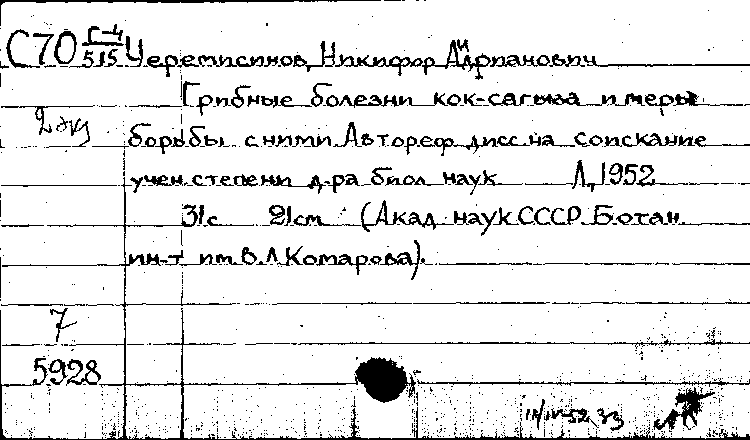 С70 С-4/515 Черемисинов, Никифор Андрианович
Грибные болезни кок-сагыза и меры
2 экз
борьбы с ними. Автореф. дисс. на соискание
учен. степени д-ра биол. наук. Л., 1952
31с 21см (Акад. наук СССР. Ботан.
ин-т им. В.Л. Комарова).
7
5928